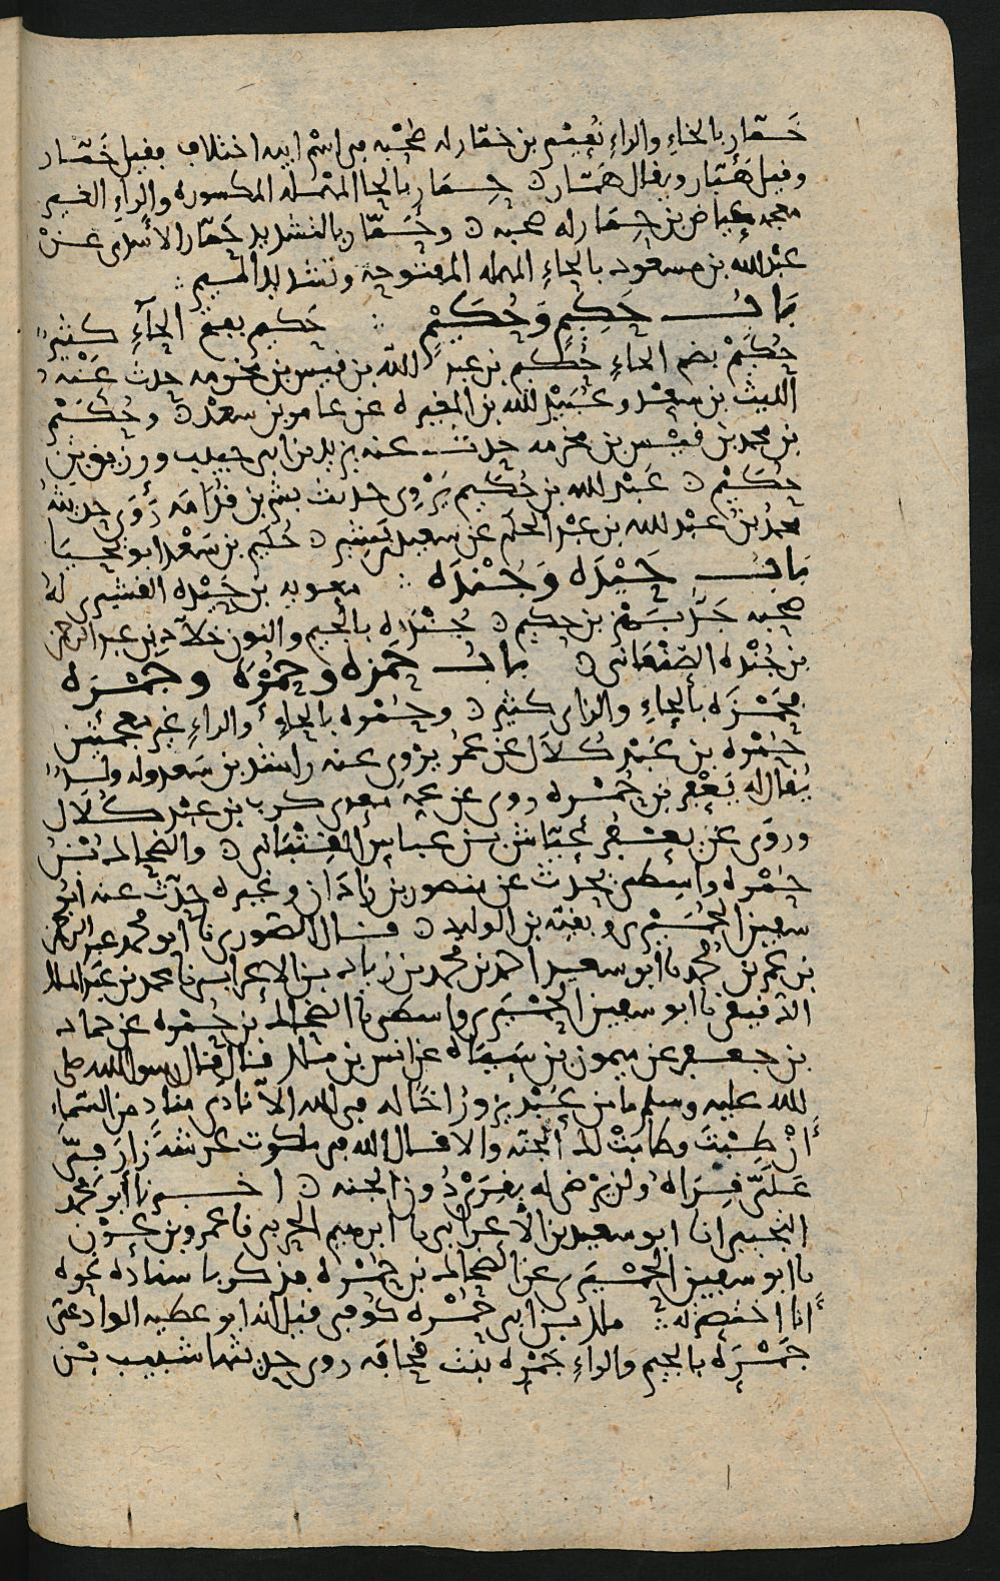 خمّار بالخاءِ والراءِ نعيم بن خمّار له صحبه في اسم ابيه اختلاف فقيل خمّار
وقيل هبّار ويقال همّار ۞ حِمَار بالحا المهمله المكسوره والراءِ الغير
معجمه عياض بن حِمَار له صحبه ۞ وحَمّار بالتشديد حَمّار الأسدي عن
عبد الله بن مسعود بالحاءِ المهمله المفتوحة وتشديد الميم
باب حَكِيم وَحُكَيْم حَكيم بفتح الحآءِ كثير
حُكَيْم بضم الحاءِ حُكيم بن عبد الله بن قيس بن مخرمه حدث عنه
الليث بن سعد وعُبيد الله بن المغيره عن عامر بن سعد ۞ وحُكَيْم
بن محمد بن قيس بن مخرمه حدث عنه يزيد بن ابي حبيب ورزيق بن
حُكَيْم ۞ عَبْد الله بن حُكَيم يَرْوِي حديث بشر بن قُدامَه رَوَى حديثه
محمد بن عبد الله بن عبد الحكم عن سعيد بن بشير ۞ حُكَيم بن سَعْد ابو تحيىَا
باب حَيْدَه وَجُنْدَه معويه بن حَيْده القشيري له
صحبه جَدّ بَهْز بن حكيم ۞ جُنْدَه بالجيم والنون خلّاد بن عبد الرحمن
بن جُنْده الصّنْعَاني ۞ باب حَمْزه وحُمْرَه وجَمْرَه
فحَمْزَه بالحاءِ والزاى كثير ۞ وحُمْره بالحاءِ والراءِ غير معجمتين
حُمْره بن عَبْد كُلَال عن عمر يروي عنه راشد بن سَعد وله ولدٌ
يُقال له يَعْفر بن حُمْره روى عن عمه معدي كرب بن عبد كلَال
وروَى عن يعفر عيّاش بن عباس القِتْبَاني ۞ والضحاك بن
حُمْره واسطي يحدث عن منصور بن زاذان وغيره حدّث عنه ابو
سفين الحِمْيَري وبقيّه بن الوليد ۞ قال الصّوري نا ابو محمد عبد الرحمن
بن عمر بن محمد نا ابو سعيد احمد بن محمد بن زياد بن الاعرابي نا محمد بن عبد الملك
الدقيقي نا ابو سفين الحِمْيَري واسطي نا الضحاك بن حُمْره عن حماد
بن جعفر عن ميمون بن سِيَاه عن انس بن مالك قال قال رسول الله صلى
الله عليه وسلم ما من عَبْد يزورُ اخًا له في الله الا نادى مناد من السّماءِ
أنْ طِبْتَ وطابَتْ لك الجنه والا قال الله في ملكوت عرشه زارَ فيّ
عَلَيَّ قِرَاه ولن يرضى له بقِرَىً دون الجنه ۞ اخبرنا ابو محمد
التجيبي انا ابو سعيد بن الأعرابي نا ابرهيم الحربي نا عمرو بن عون
نا ابو سفين الحِمْيَري عن الضحاك بن حُمْره فذكر باسناده نحوه
أنا اختصرته ملك بن ابي حُمْره كوفي قيل انه ابو عطيه الوادعي
جَمْرَه بالجيم والراءِ جَمْره بنت قحافه روى حديثها شبيب بن